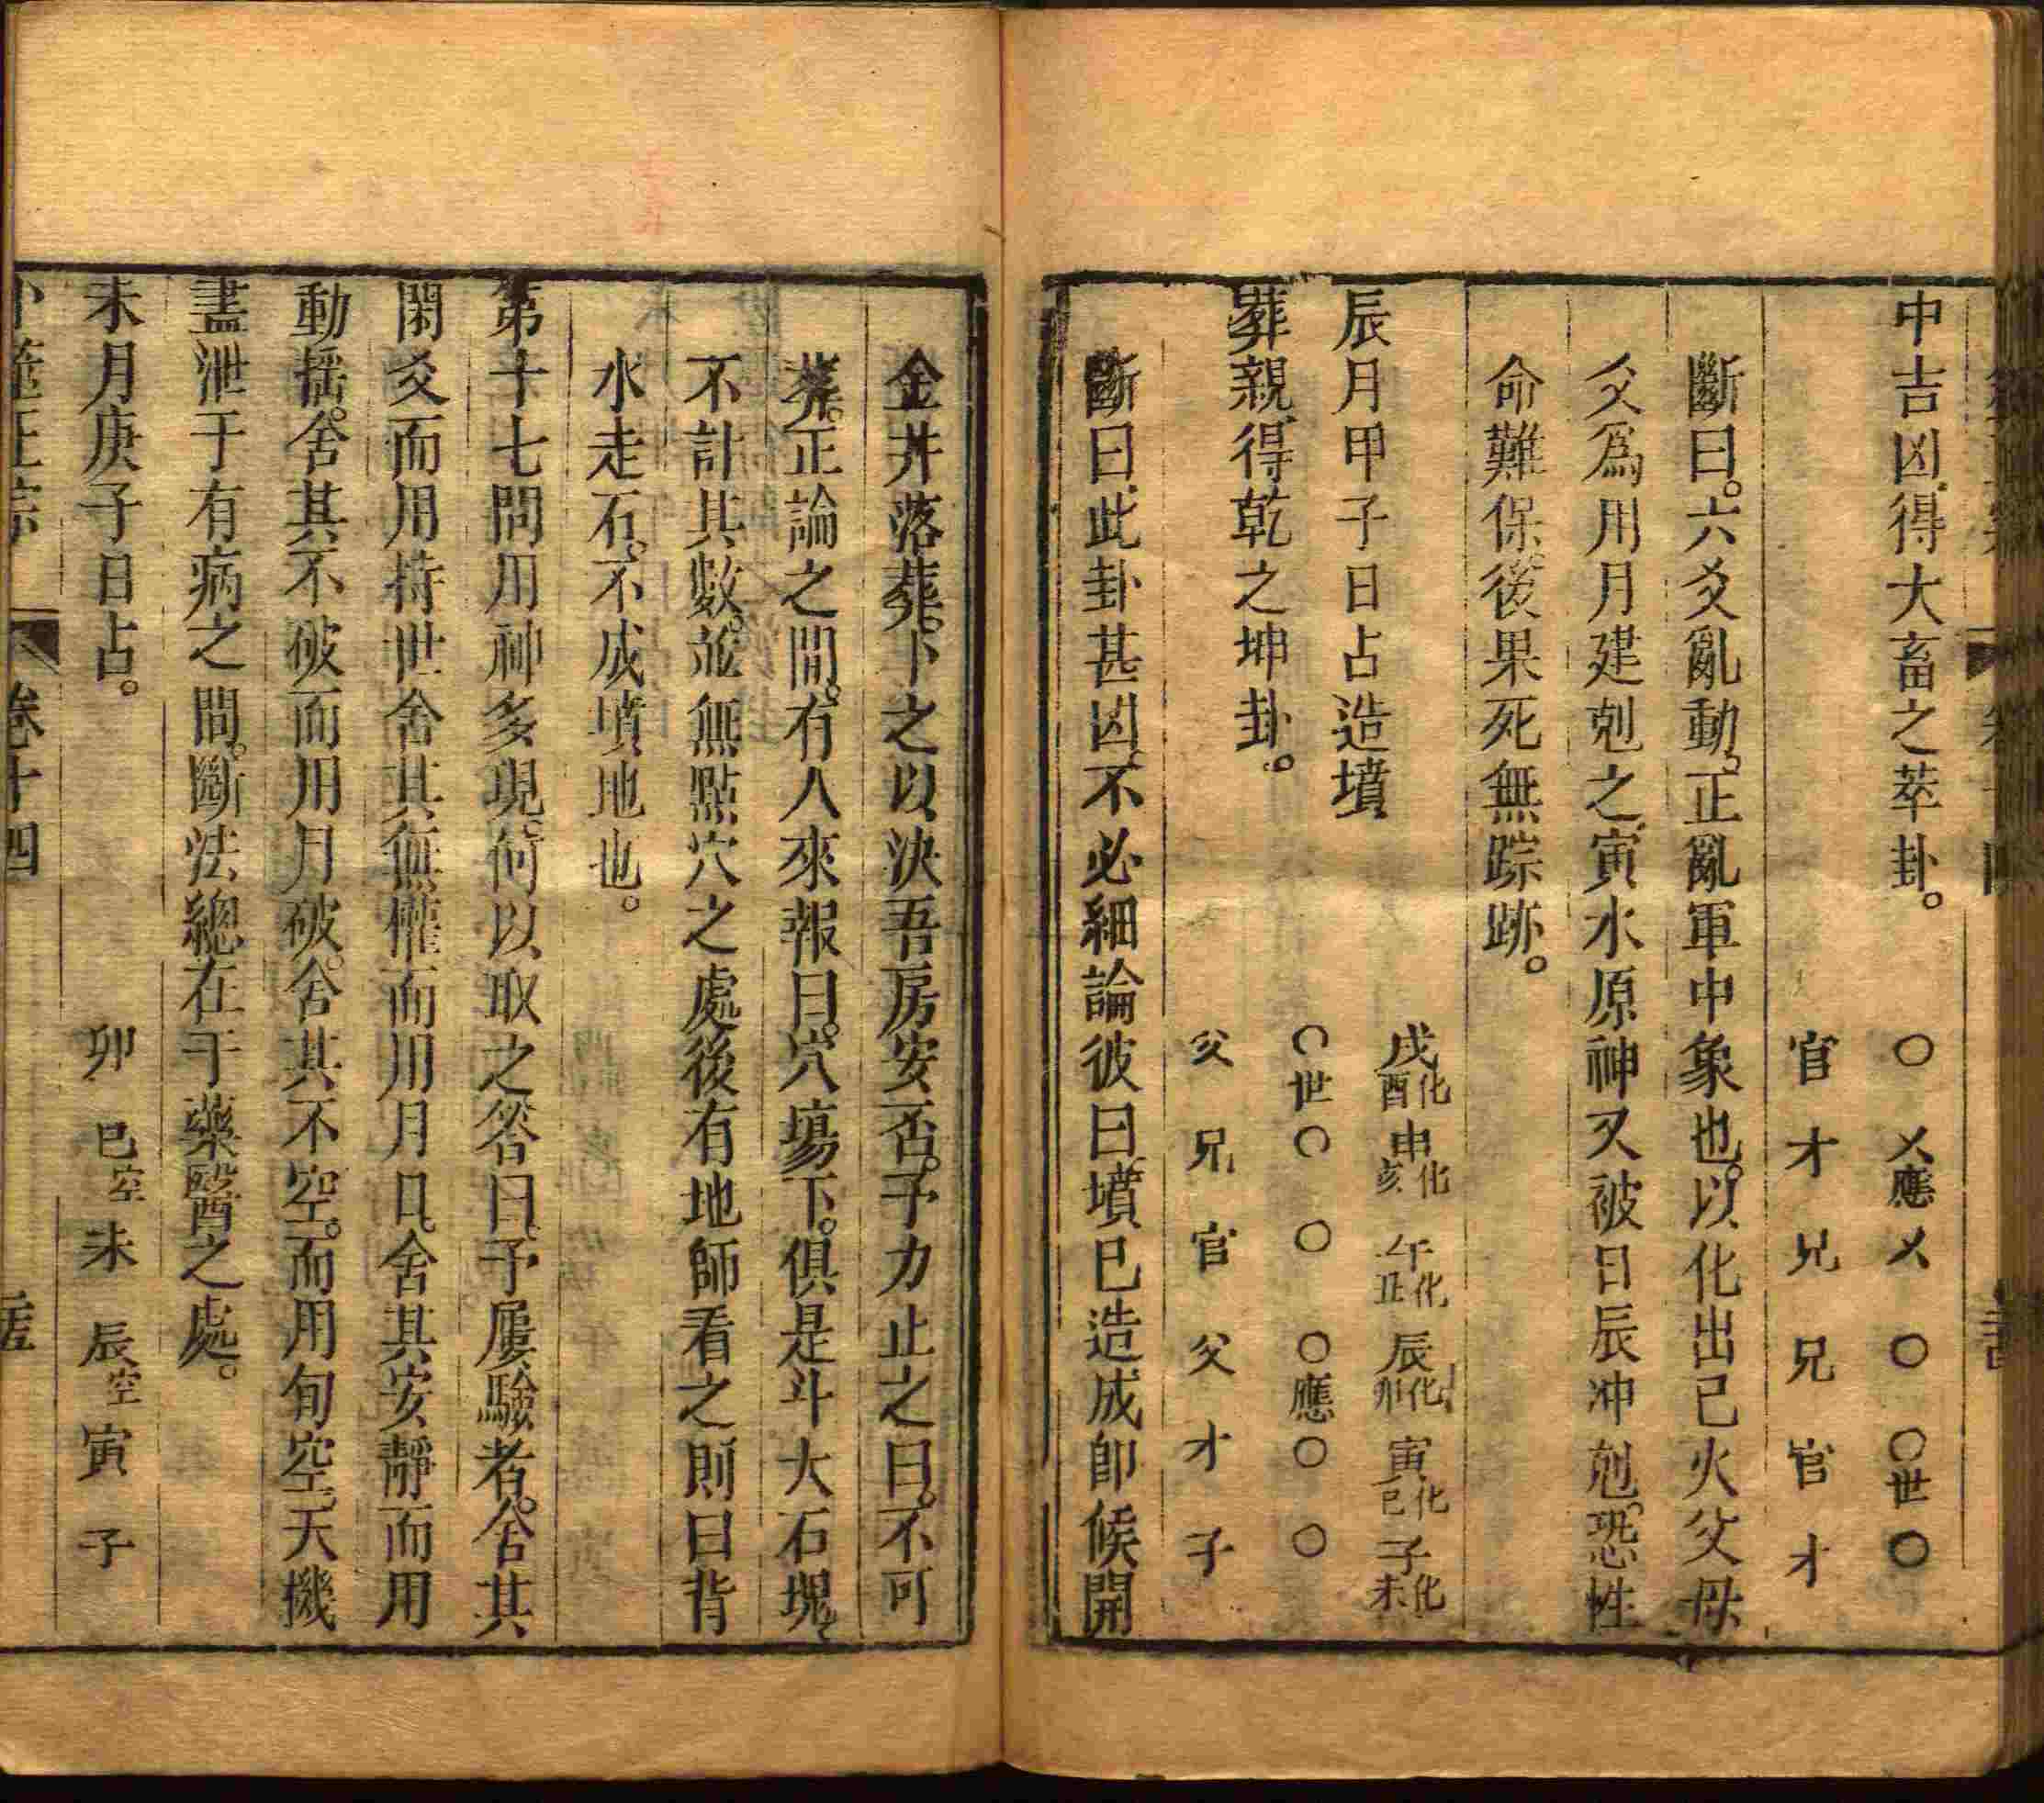 中吉凶得大畜之萃卦。
〇 乂應 乂 〇 〇世 〇
官 才 兄 兄 官 才
斷曰。六爻亂動。正亂軍中象也。以化出巳火父母
爻爲用月建剋之寅水原神又被日辰冲剋。恐性
命難保。後果死無踪跡。
辰月甲子日占造墳
戌化酉 申化亥 午化丑 辰化卯 寅化巳 子化未
葬親得乾之坤卦。
〇世 〇 〇 〇應 〇 〇
父 兄 官 父 才 子
斷曰。此卦甚凶。不必細論彼曰墳已造成卽候開
金井落葬。卜之以決吾房安否。予力止之曰。不可
葬。正論之間。有人來報曰。穴塲下。俱是斗大石塊。
不計其數。並無點穴之處後有地師看之則曰背
水走石。不成墳地也。
第十七問用神多現。何以取之答曰。予屢驗者。舍其
閑爻而用持世舍其無權而用月日。舍其安靜而用
動摇。舍其不破而用月破。舍其不空。而用旬空。天機
盡泄于有病之間。斷法總在于藥醫之處。
未月庚子日占。
卯 巳空 未 辰空 寅 子
卜筮正宗 卷十四